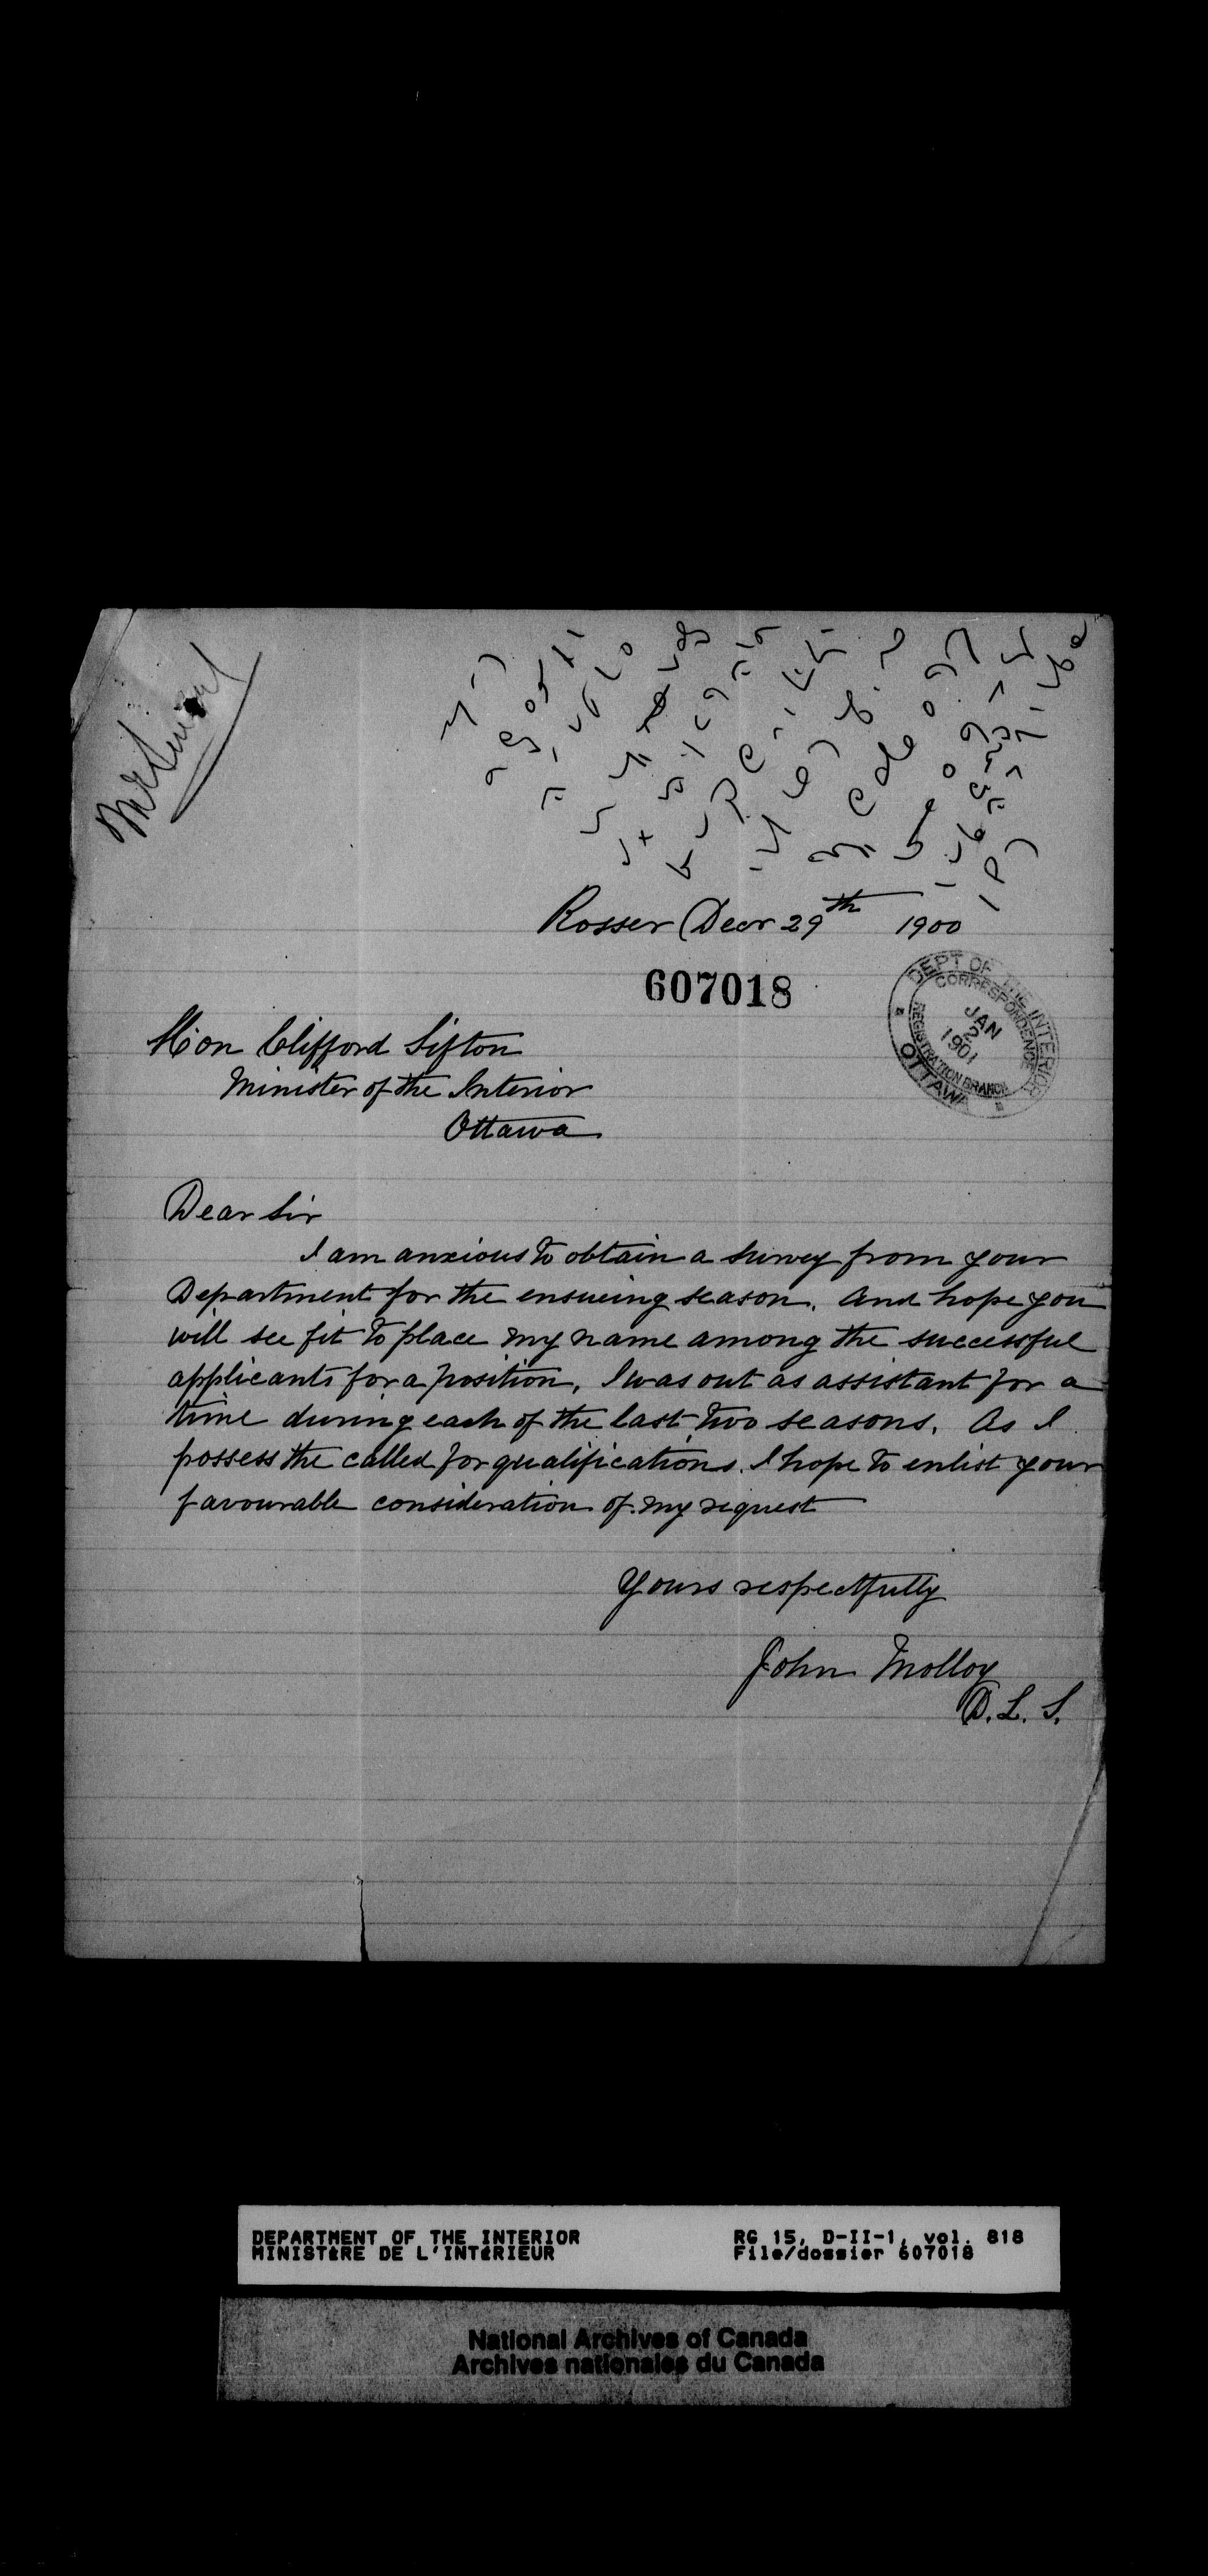 Rosser Decr 29th 1900
607018
DEPT OF THE INTERIOR
CORRESPONDENCE
JAN
2
1901
REGISTRATION BRANCH
OTTAWA
Hon Clifford Sifton
Minister of the Interior
Ottawa
Dear Sir
I am anxious to obtain a survey from your
Department for the ensueing season. And hope you
will see fit to place my name among the successful
applicants for a position. I was out as assistant for a
time during each of the last two seasons. As I
possess the called for qualifications. I hope to enlist your
favourable consideration of my request
Yours respectfully
John Molloy
D. L. S.
DEPARTMENT OF THE INTERIOR
MINISTÈRE DE L'INTÉRIEUR
RG 15, D-II-1, vol. 818
File/dossier 607018
National Archives of Canada
Archives nationales du Canada